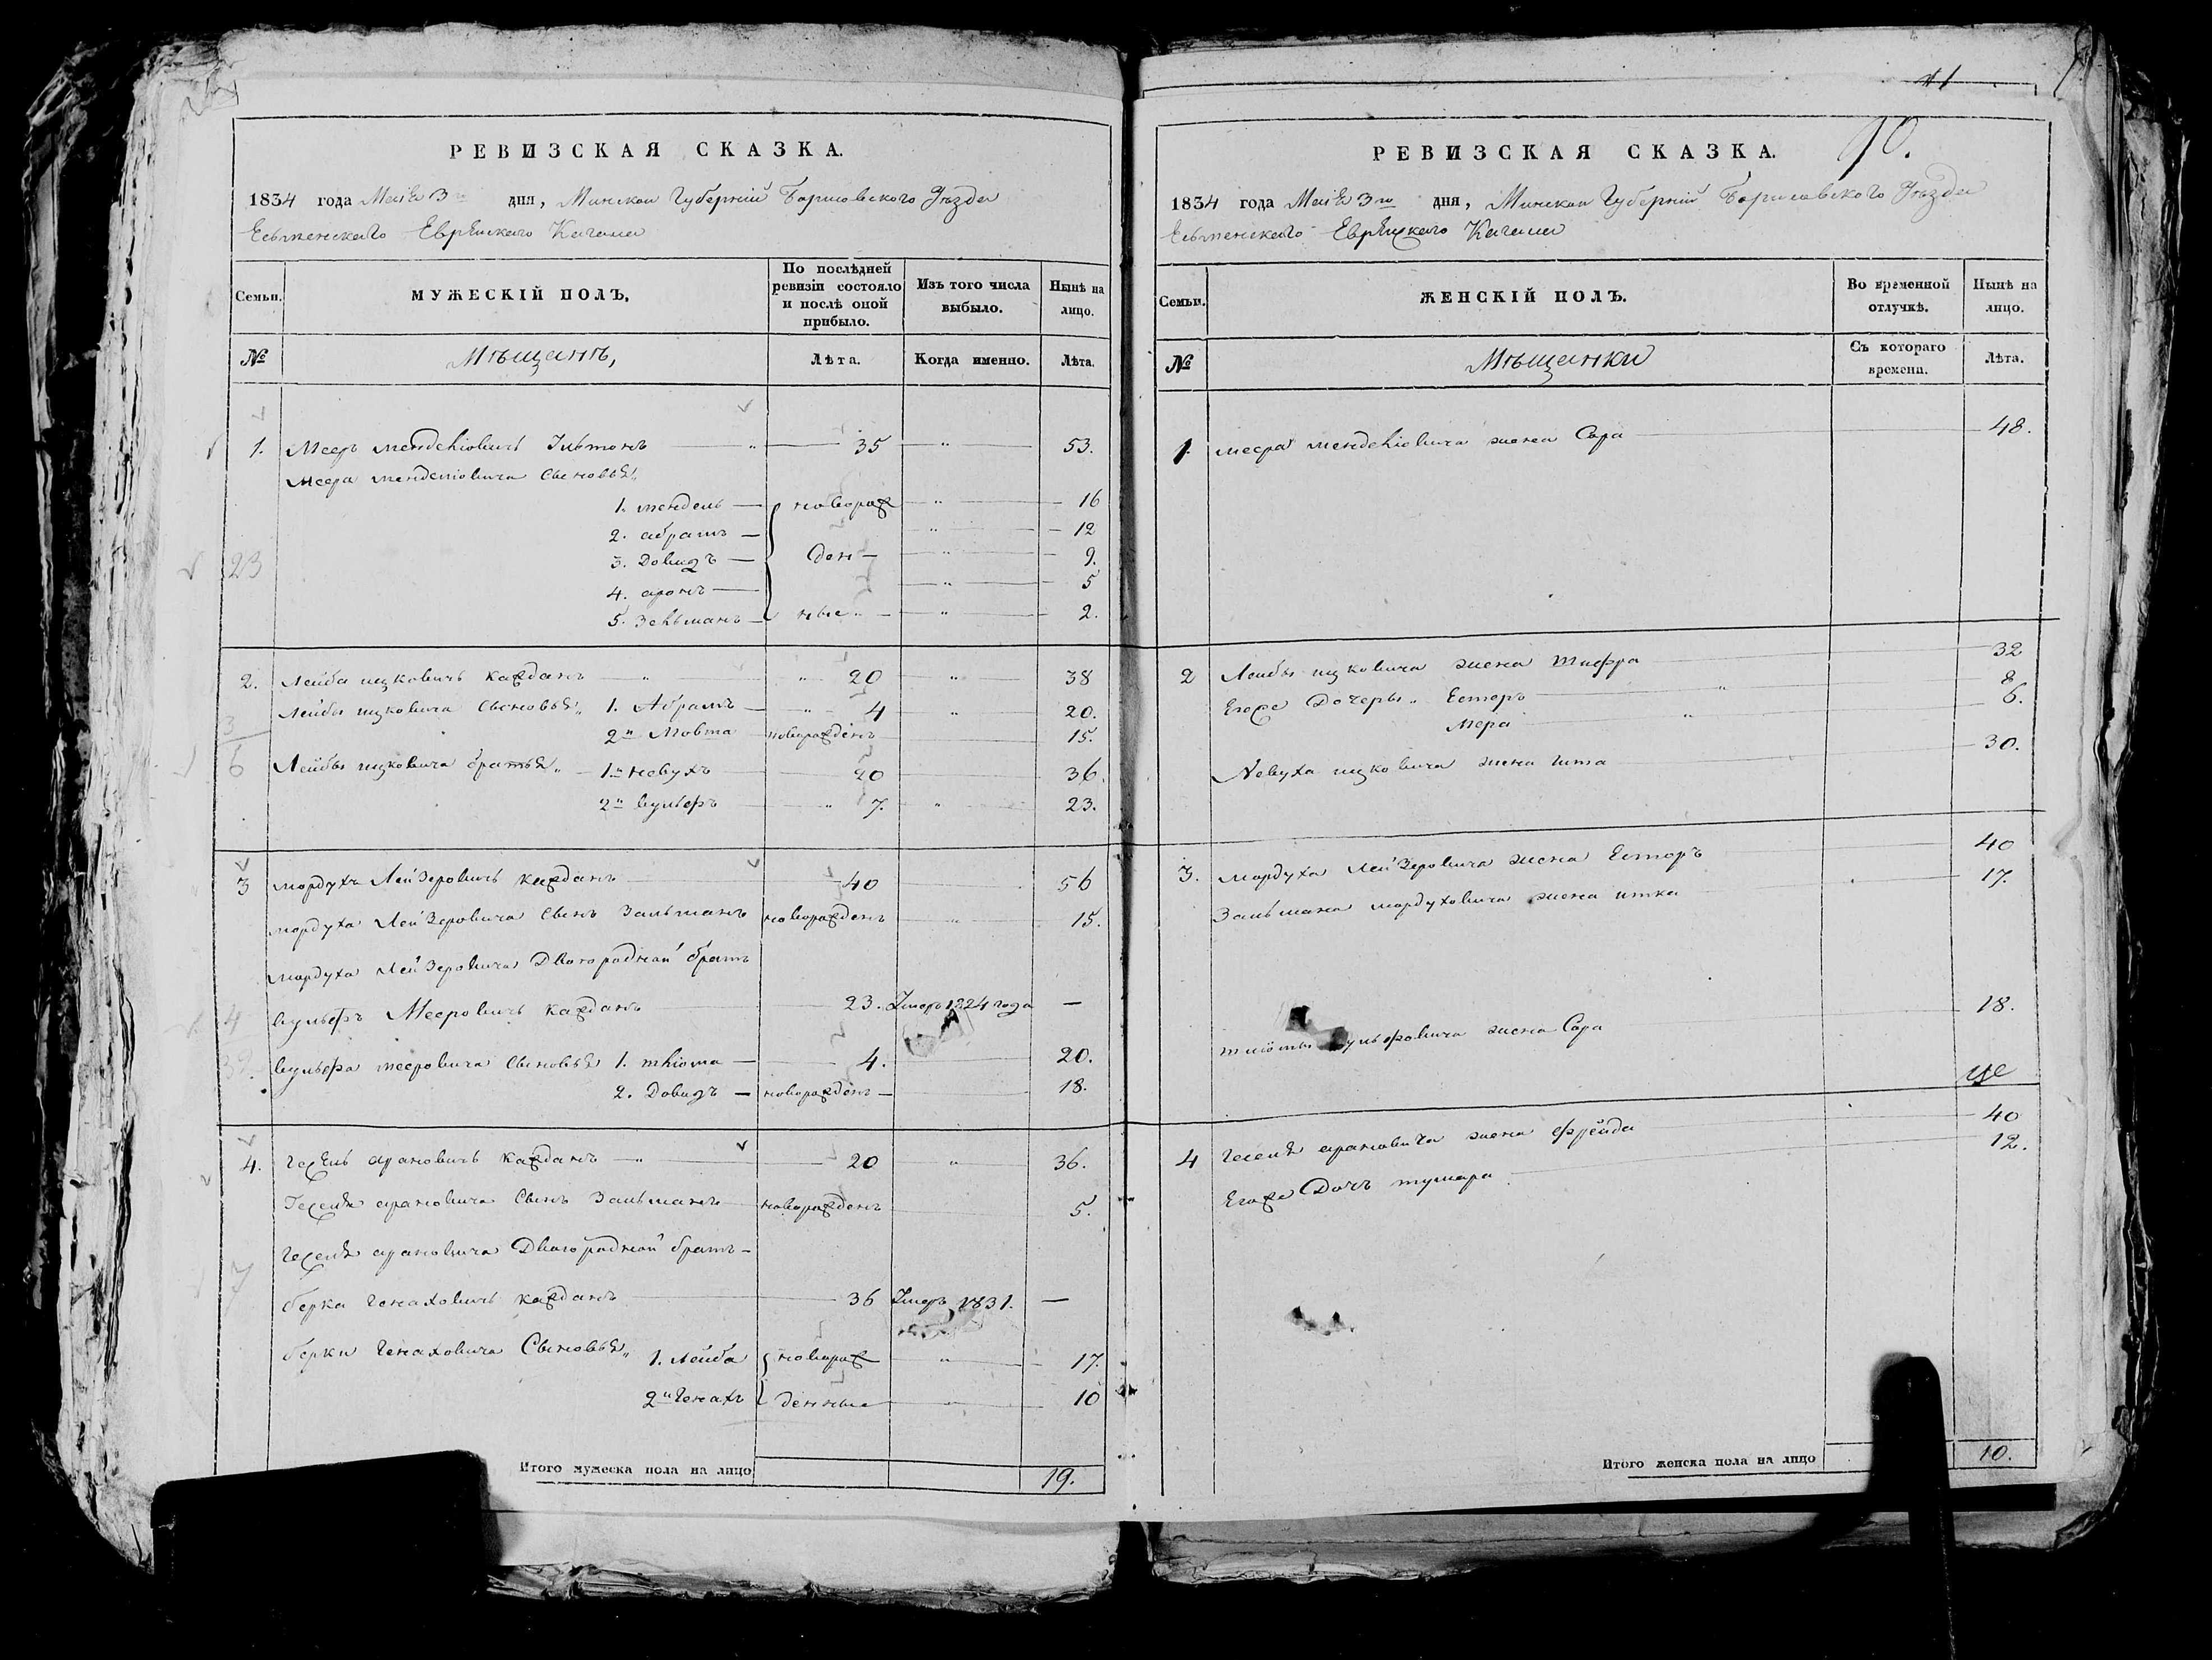 РЕВИЗСКАЯ СКАЗКА.
1834 года Маія 3го дня, Минской Губерніи Борисовскаго Уѣзда
Еврейскаго Кагала
Семьи. МУЖЕСКІЙ ПОЛЪ. По послѣдней ревизіи состояло и послѣ оной прибыло. Изъ того числа выбыло. Нынѣ на лицо.
№ Мѣщанъ, Лѣта. Когда именно. Лѣта.
1. Мееръ 35 " 53.
Меера Сыновья,,
1. мендель новорож " 16
2. абрамъ " 12
3. Довидъ ден " 9.
4. аронъ " 5
5. Зельманъ ные " 2.
23
2. Лейба ицковичъ Кажданъ " 20 " 38
Лейбы ицковича Сыновья,, 1. Абрамъ " 4 " 20.
2" Мовша новорожденъ 15.
3
6 Лейбы ицковича братья,, 1" невухъ 20 36.
2" вульфъ " 7. " 23.
3 мордухъ Лейзеровичъ кажданъ 40 56
мордуха Лейзеровича Сынъ Зальманъ новорожденъ " 15.
мордуха Лейзеровича Двоюродной братъ
4 вульфъ Мееровичъ каждань 23. Умеръ 1824 года —
вульфа мееровича Сыновья 1. 4. 20.
2. Довидъ новорожденъ 18.
4. арановичъ каждань " 20 " 36.
арановича Сынъ Зальманъ новорожденъ 5.
арановича Двоюродной братъ
7 берка Генаховичъ каждань 36 Умеръ 1831. —
берки Генаховича Сыновья,, 1. Лейба новорож " 17.
2" Генахъ денные " 10
Итого мужеска пола на лицо 19.
41
90.
РЕВИЗСКАЯ СКАЗКА.
1834 года Маія 3го дня, Минской Губерніи Борисовскаго Уѣзда
Еврейскаго Кагала
Семьи. ЖЕНСКІЙ ПОЛЪ. Во временной отлучкѣ. Нынѣ на лицо.
№ Мѣщанки Съ котораго времени. Лѣта.
1. меера жена Сора 48.
2 Лейбы ицковича жена 32
Егоже Дочеры,, Есторъ " 8
Мера " 6.
Невуха ицковича жена 30.
3. мордуха Лейзеровича жена Есторъ 40
Зальмана мордуховича жена итка 17.
вульфовича жена Сора 18.
4 арановича жена фрейда 40
Егоже Дочъ 12.
Итого женска пола на лицо 10.